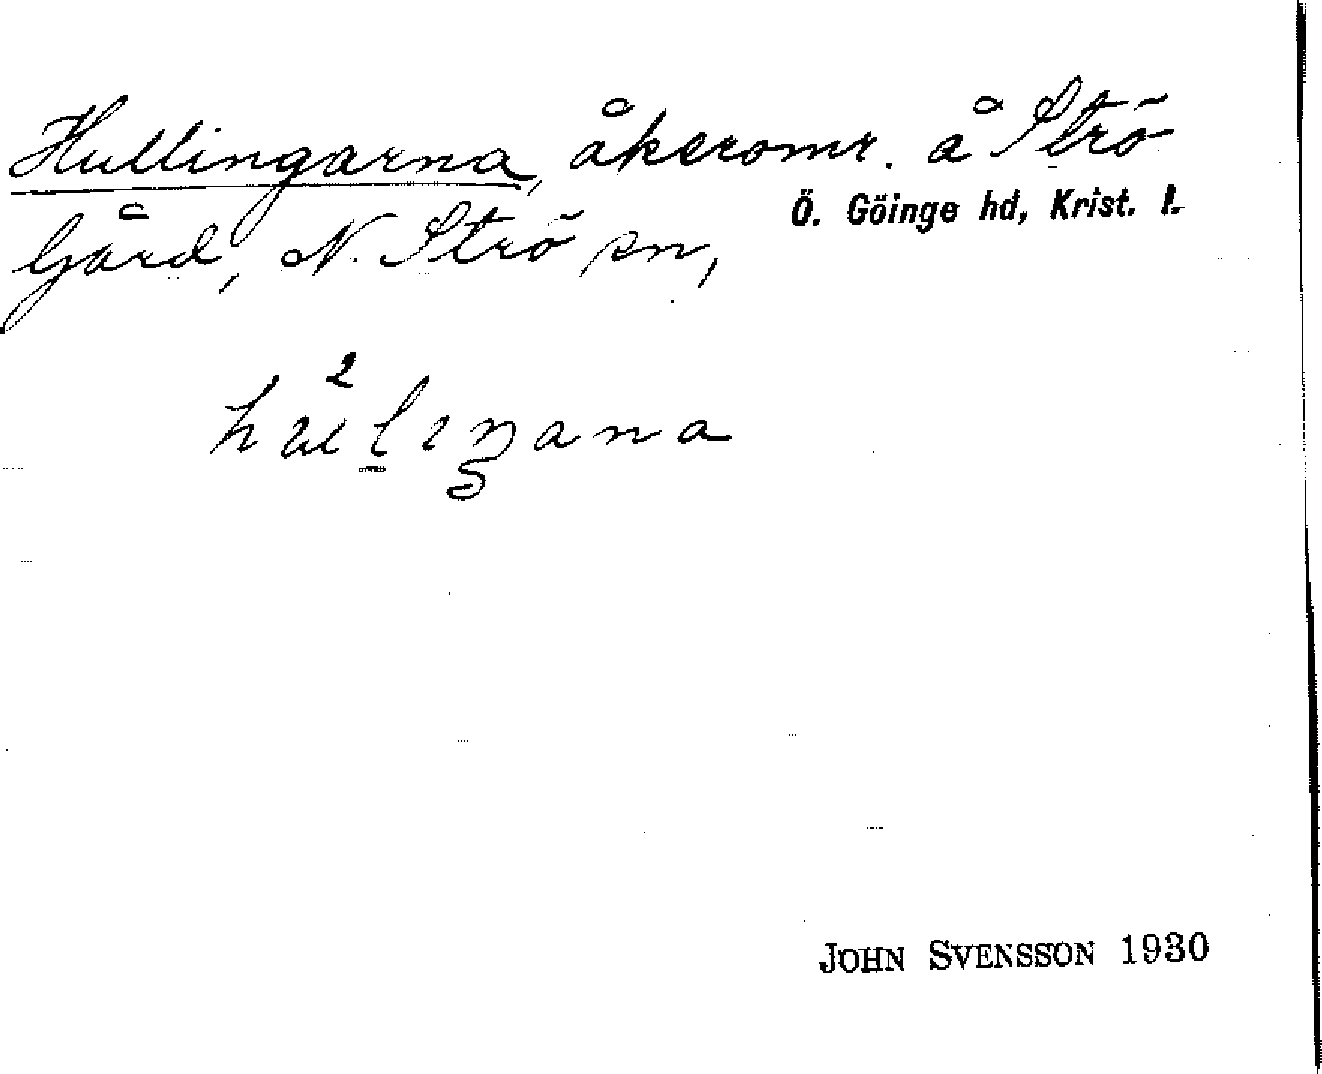 Hullingarna, åkeromr. å Strö
Ö. Göinge hd, Krist. l.
Gård, N. Strö sn,
2
hulıŋana
JOHN SVENSSON 1930